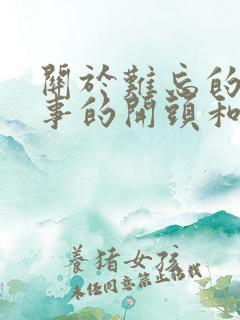 關於難忘的
事的開頭和
養猪女孩
未經同意禁止轉載